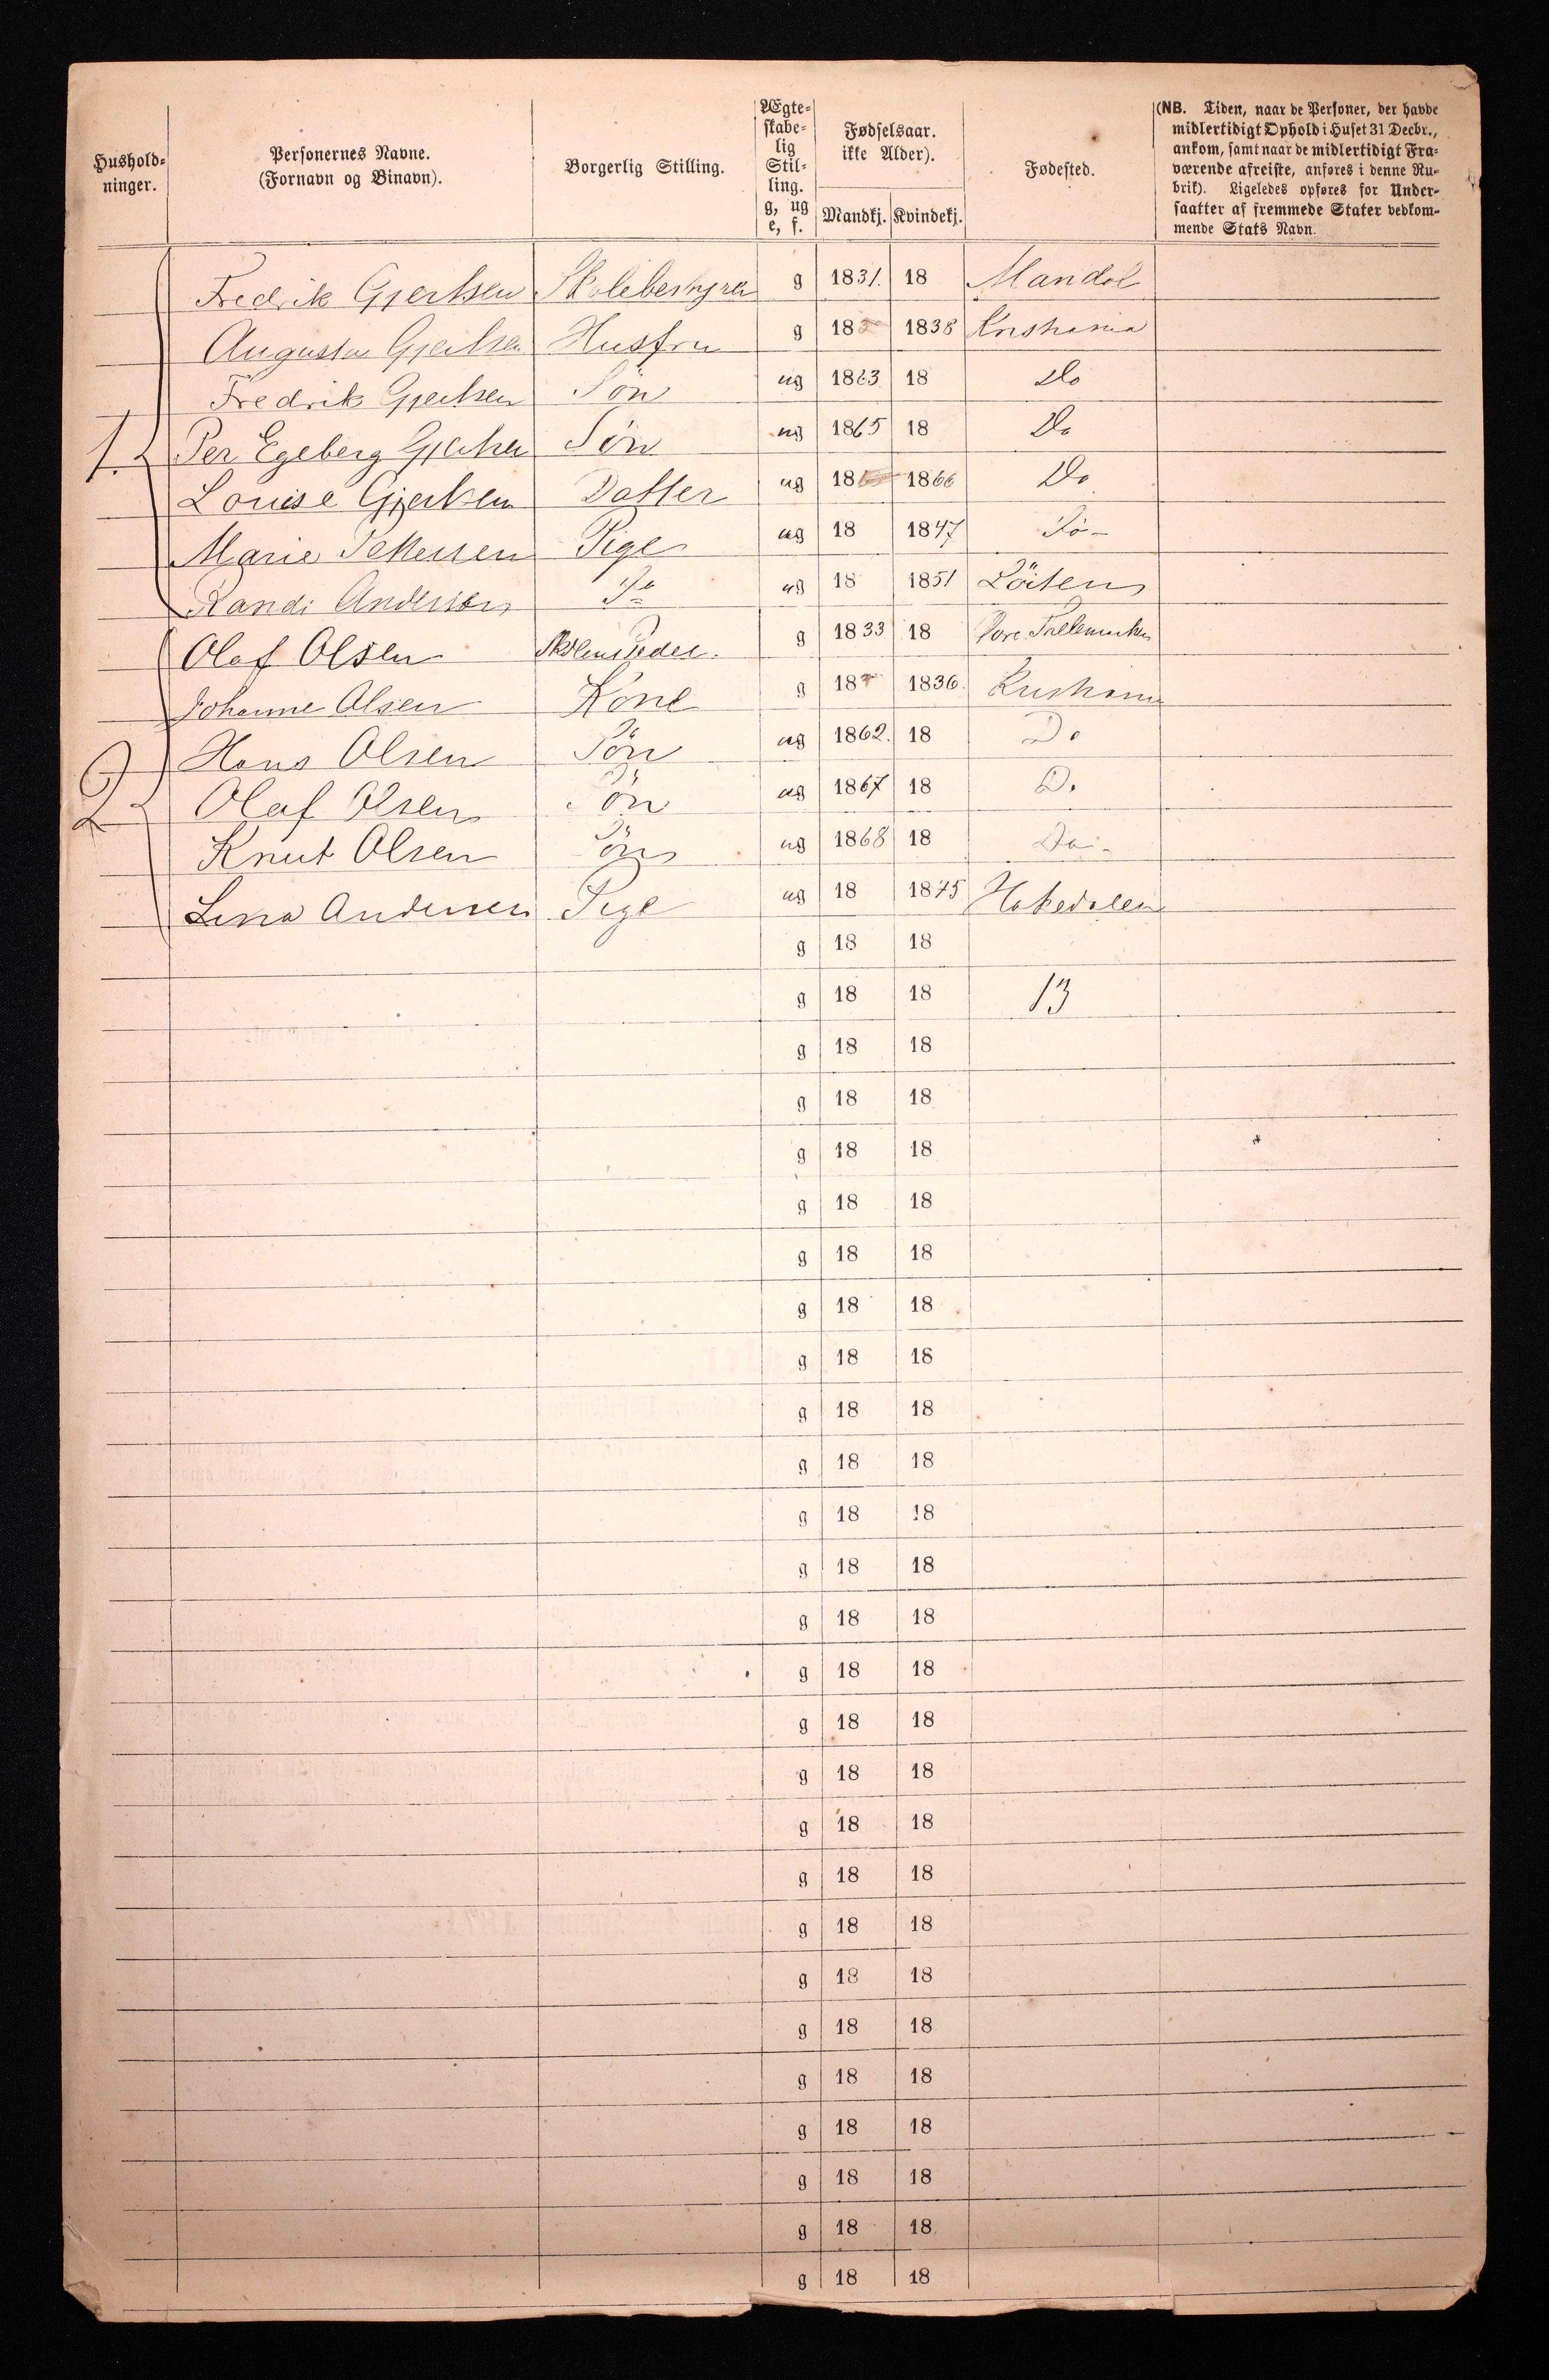 Hushold-
ninger.
Personernes Navne.
(Fornavn og Binavn).
Borgerlig Stilling.
Ægte-
skabe-
lig
Stil-
ling.
g, ug
e, f.
Fødselsaar.
ikke Alder).
Mandkj. Kvindekj.
Fødested.
(NB. Tiden, naar de Personer, der havde
midlertidigt Ophold i Huset 31 Decbr.,
ankom, samt naar de midlertidigt Fra-
værende afreiste, anføres i denne Ru-
brik). Ligeledes opføres for Under-
saatter af fremmede Stater vedkom-
mende Stats Navn.
Fredrik Gjertsen Skolebestyrer g 1831. 18 Mandal
Augusta Gjertsen Hustru g 18 1838 Kristiania
Fredrik Gjertsen Søn ug 1863 18 Do
1. Per Egeberg Gjertsen Søn ug 1865 18 Do
Louise Gjertsen Datter ug 18 1866 Do
Marie Pettersen Pige ug 18 1847 Do
Randi Anderson Do ug 18 1851 Löiten
Olaf Olsen g 1833 18
Johanne Olsen Kone g 18 1836. Kristiania
Hans Olsen Sön ug 1862. 18 Do
2 Olaf Olsen Sön ug 1867 18 Do
Knut Olsen Sön ug 1868 18 Do
Lina Andersen Pige ug 18 1845 Hakedalen
g 18 18
g 18 18 13
g 18 18
g 18 18
g 18 18
g 18 18
g 18 18
g 18 18
g 18 18
g 18 18
g 18 18
g 18 18
g 18 18
g 18 18
g 18 18
g 18 18
g 18 18
g 18 18
g 18 18
g 18 18
g 18 18
g 18 18
g 18 18
g 18 18
g 18 18
g 18 18
g 18 18